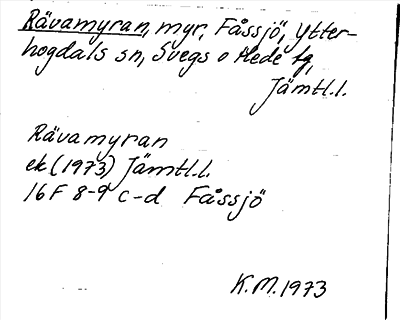 Rävamyran, myr, Fåssjö, Ytter-
hogdals sn, Svegs o Hede tg,
Jämtl.l.
Rävamyran
ek (1973) Jämtl.l.
16F 8-9 c-d Fåssjö
K.M. 1973